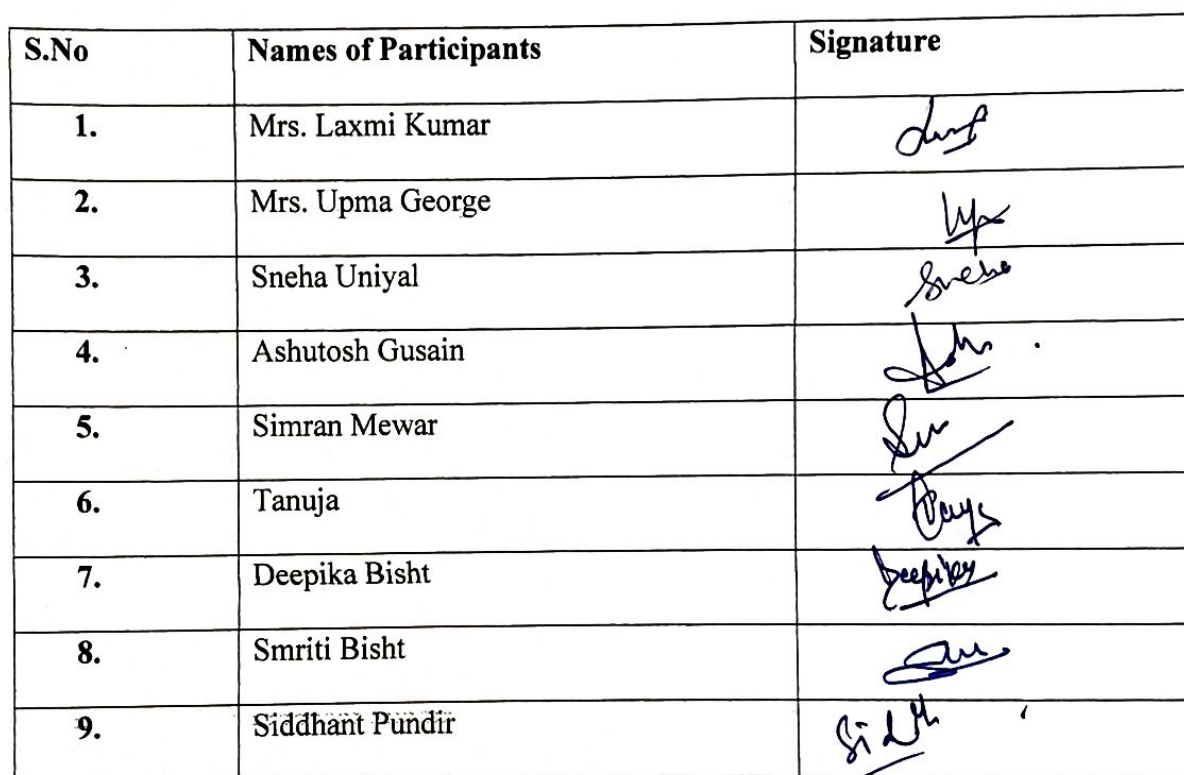 S.No Names of Participants Signature
1. Mrs. Laxmi Kumar
2. Mrs. Upma George
3. Sneha Uniyal Sneha
4. Ashutosh Gusain
5. Simran Mewar
6. Tanuja
7. Deepika Bisht Deepika
8. Smriti Bisht
9. Siddhant Pundir Siddh